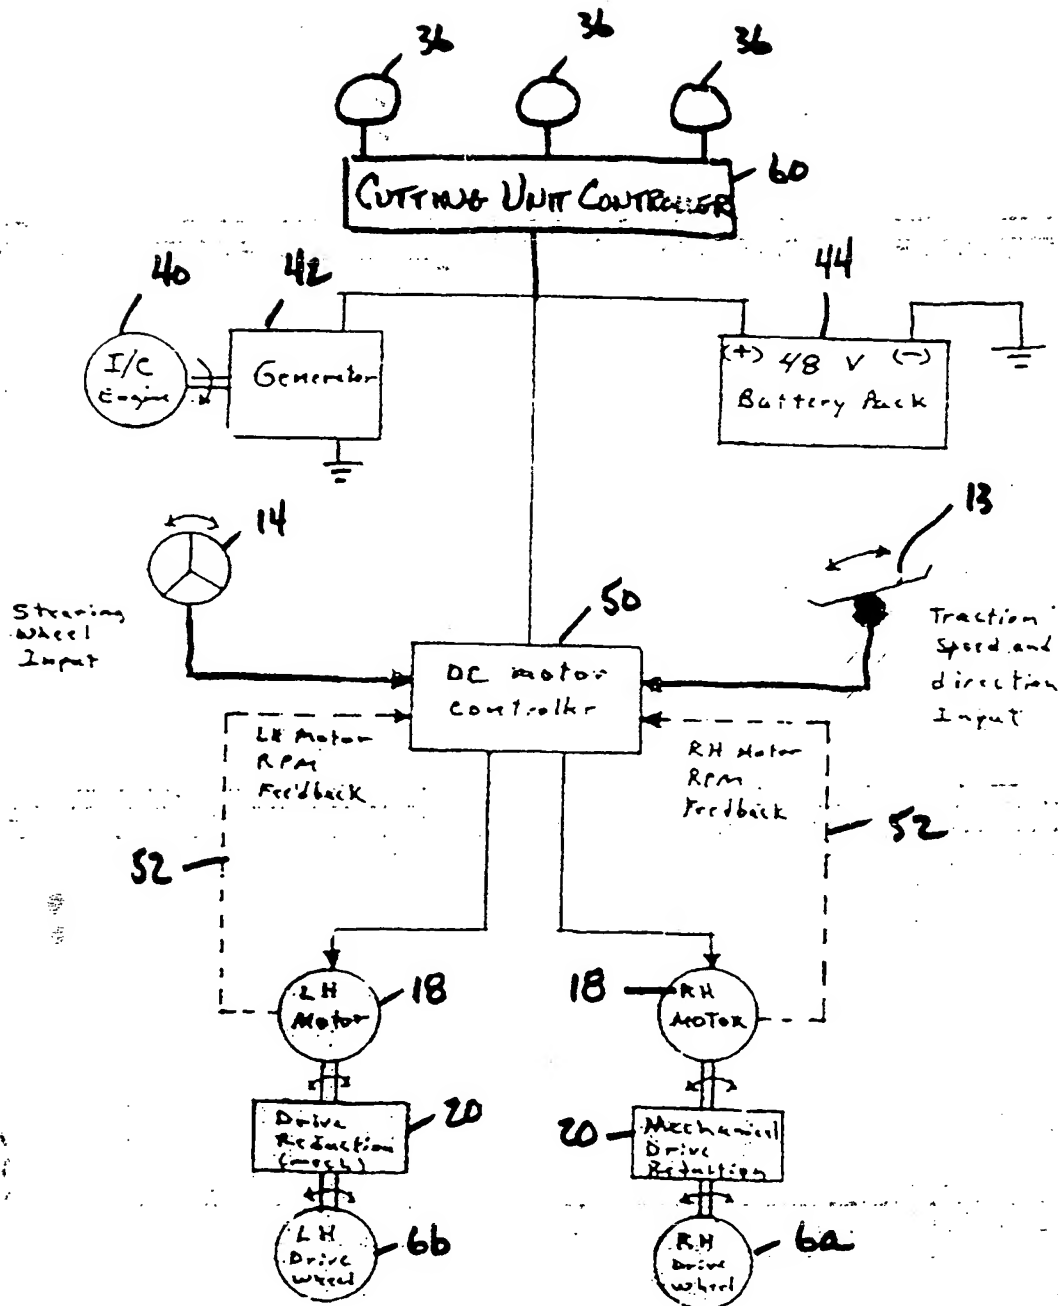 36 36 36
60
CUTTING UNIT CONTROLLER
40 42 44
I/C
Engine
Generator
(+) 48 V (-)
Battery Pack
14
13
Steering
Wheel
Input
50
Traction
Speed and
direction
Input
DC motor
controller
LH Motor
RPM
Feedback
RH Motor
RPM
Feedback
52
52
LH
Motor
18
18
RH
MOTOR
Drive
Reduction
(mech)
20
20
Mechanical
Drive
Reduction
LH
Drive
Wheel
6b
6a
RH
Drive
Wheel